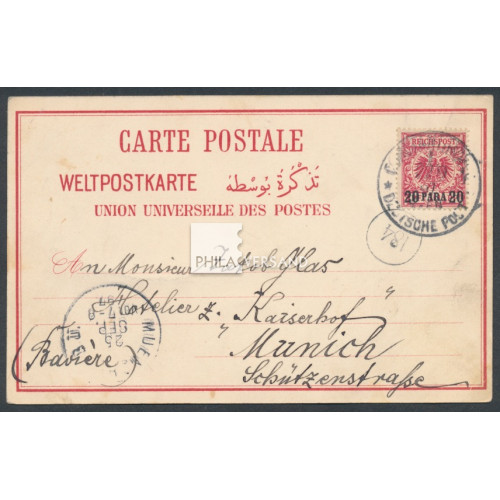 CARTE POSTALE
WELTPOSTKARTE تذكرة بوسطه
UNION UNIVERSELLE DES POSTES
REICHSPOST
20 PARA 20
DEUTSCHE POST
PHILA VERSAND
An Monsieur Jakob Glas
Hotelier z. "Kaiserhof"
Munich
(Baviere)
Schützenstraße
MUE
25
SEP.
7-8
97